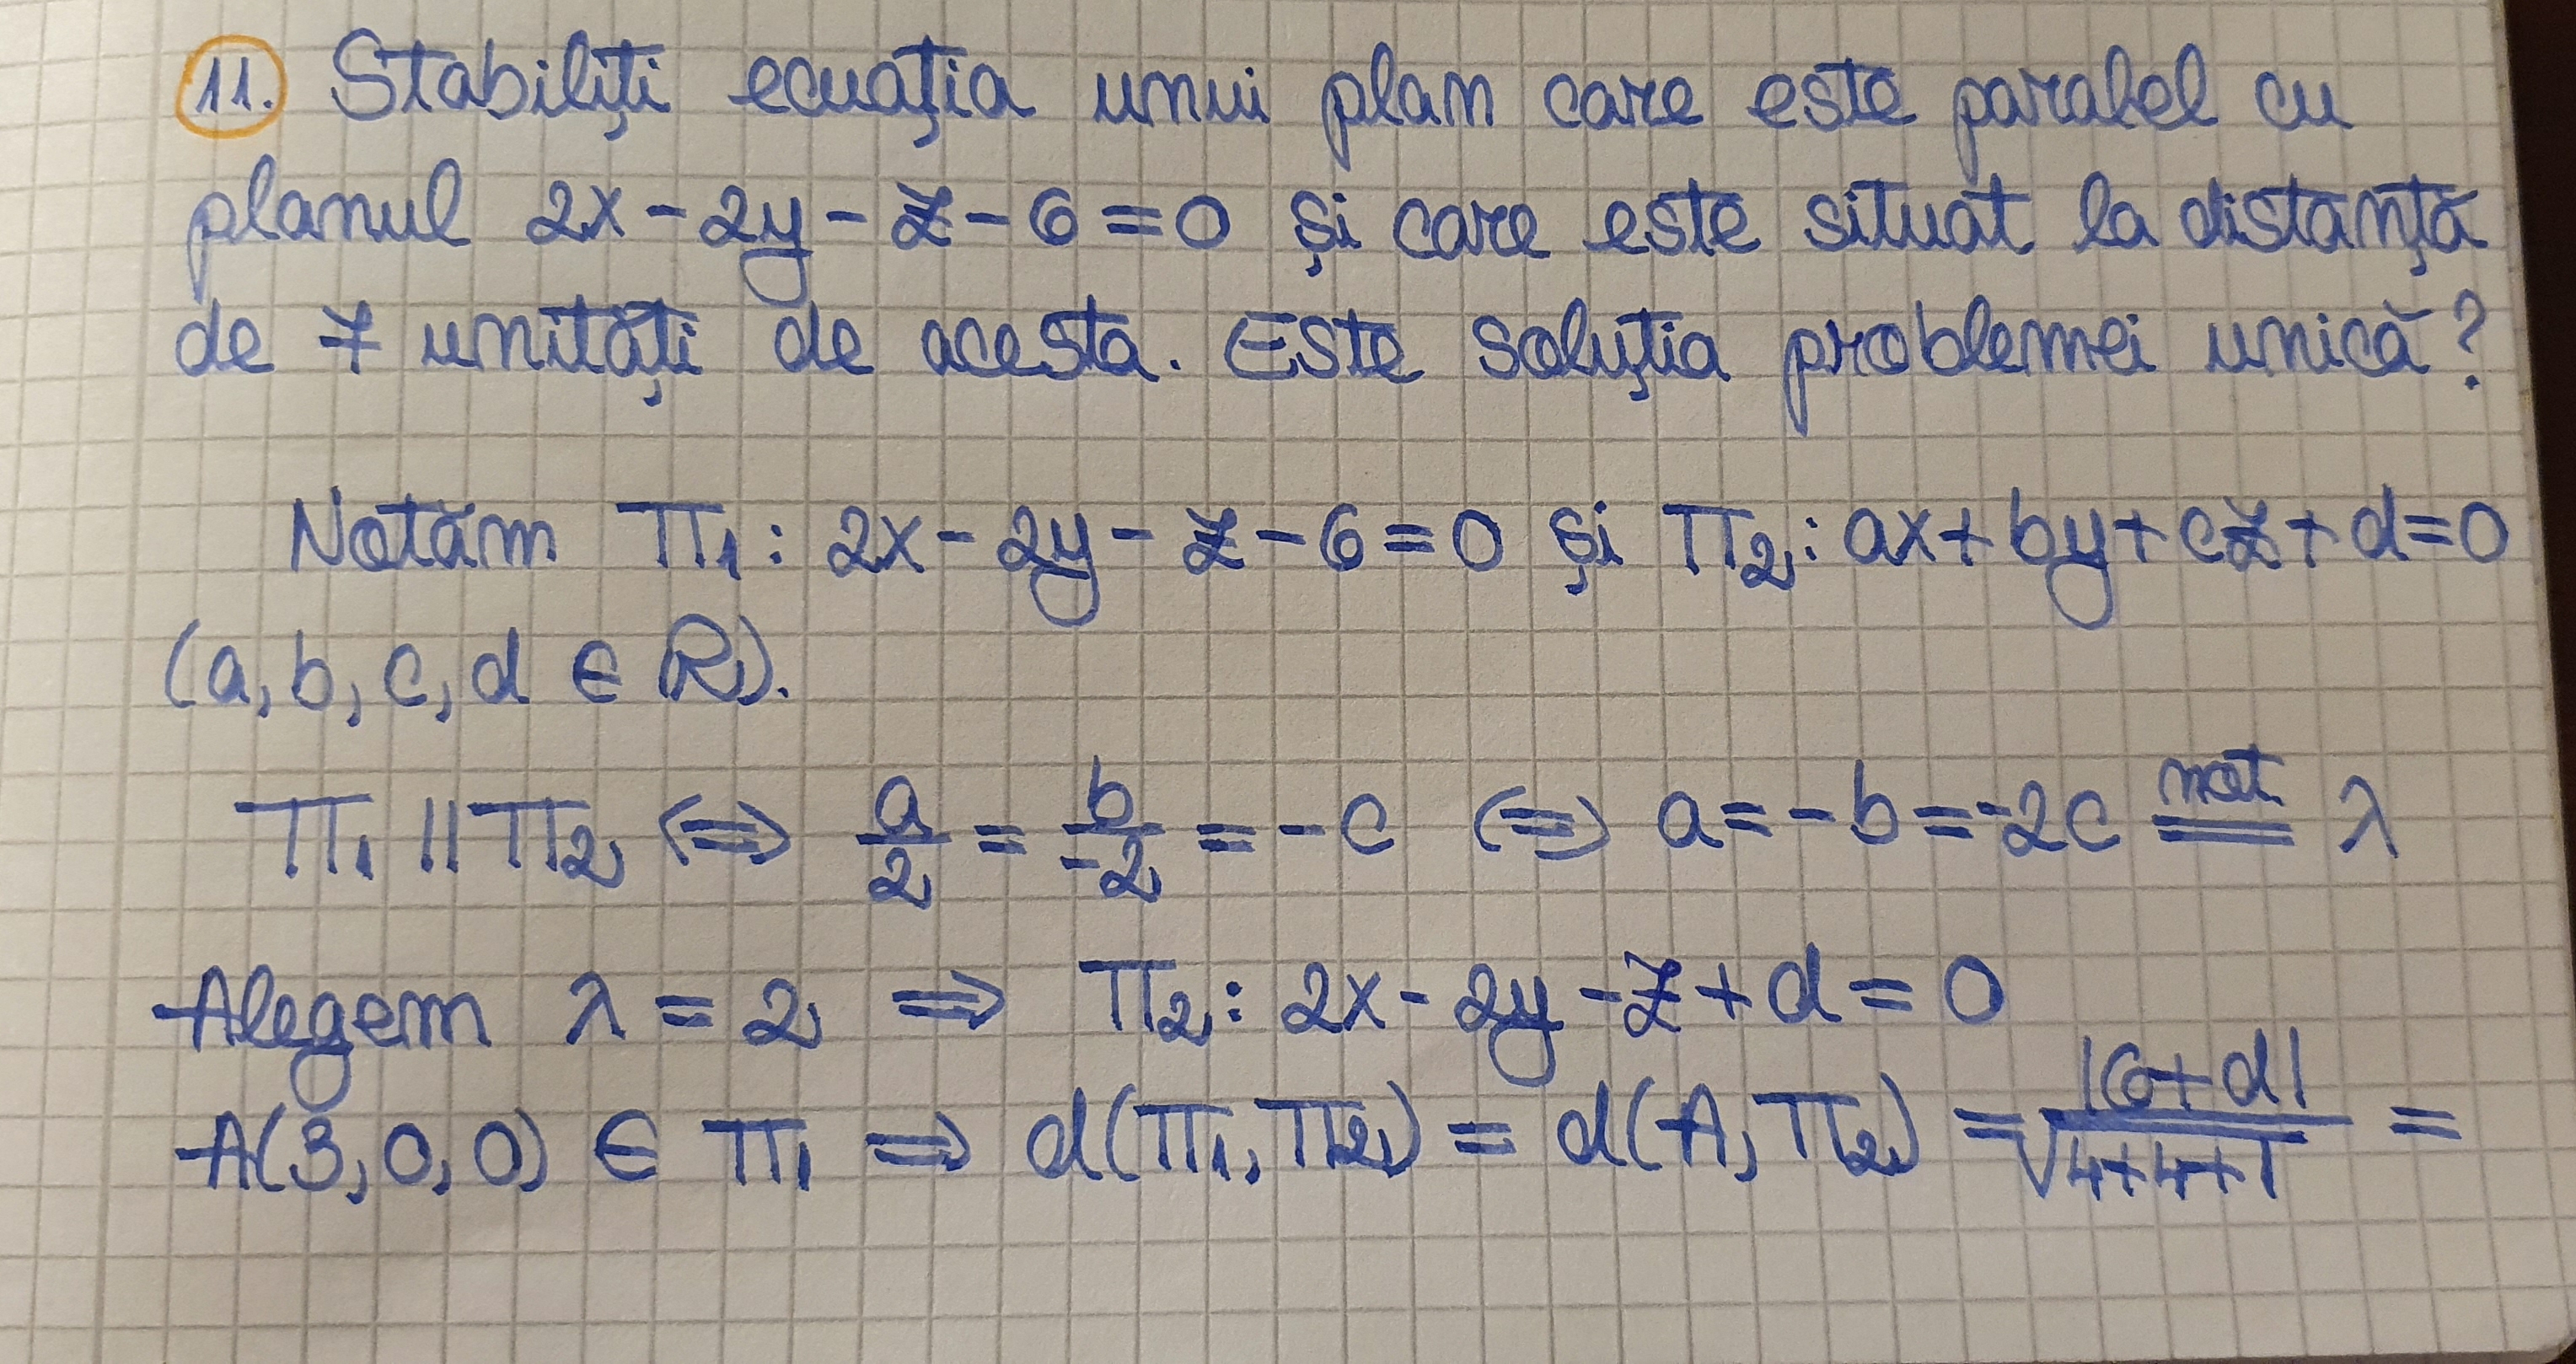 11. Stabiliți ecuația unui plan care este paralel cu
planul 2x-2y-z-6=0 și care este situat la distanță
de 7 unități de acesta. Este soluția problemei unică?
Notăm π₁: 2x-2y-z-6=0 și π₂: ax+by+cz+d=0
(a, b, c, d ∈ ℝ).
π₁ || π₂ ⇔ a/2 = b/-2 = -c ⇔ a=-b=-2c not= λ
Alegem λ = 2 ⇒ π₂: 2x-2y-z+d=0
A(3,0,0) ∈ π₁ ⇒ d(π₁,π₂) = d(A,π₂) = |6+d|/√4+4+1 =